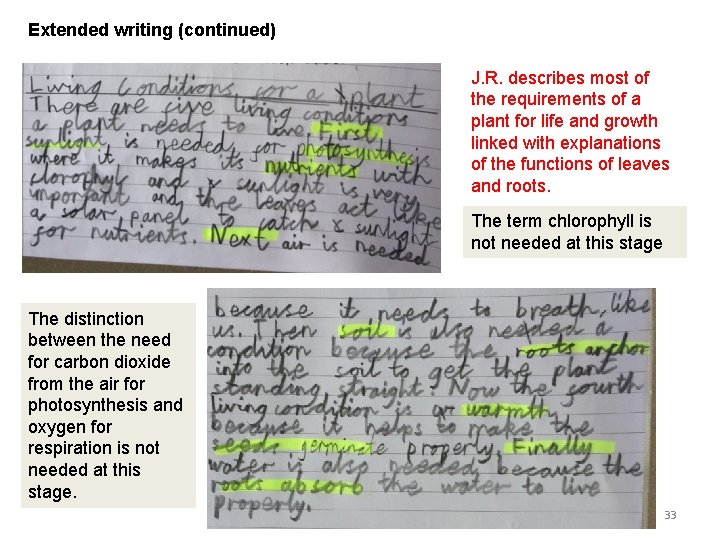 Extended writing (continued)
Living Conditions for a plant
There are five living conditions
a plant needs to live. First
sunlight is needed for photosynthesis
where it makes its nutrients with
clorophyl and sunlight is very
important and the leaves act like
a solar panel to catch sunlight
for nutrients. Next air is needed
J.R. describes most of
the requirements of a
plant for life and growth
linked with explanations
of the functions of leaves
and roots.
The term chlorophyll is
not needed at this stage
The distinction
between the need
for carbon dioxide
from the air for
photosynthesis and
oxygen for
respiration is not
needed at this
stage.
because it needs to breath, like
us. Then soil is also needed a
condition because the roots anchor
into the soil to get the plant
standing straight. Now the fourth
living condition is warmth
because it helps to make the
seeds germinate properly. Finally
water is also needed because the
roots absorb the water to live
properly.
33